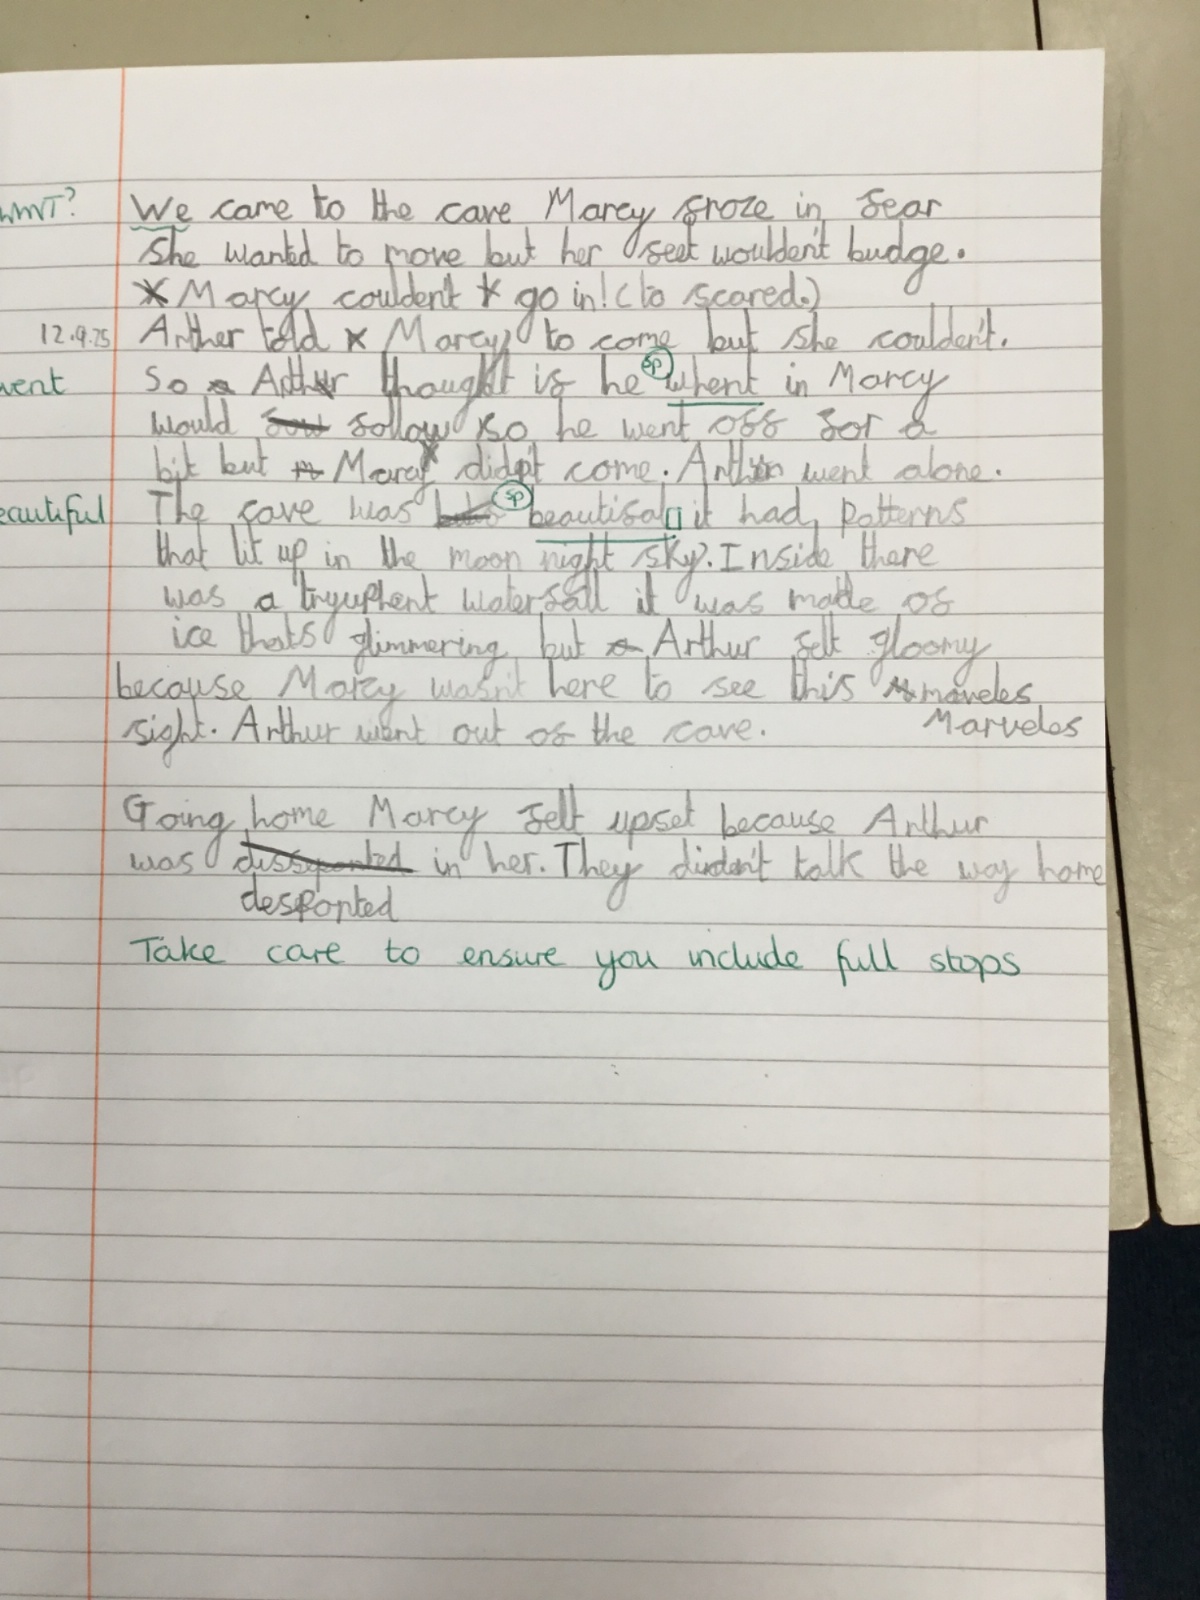 WMT? We came to the cave Marcy froze in fear
she wanted to move but her feet wouldn't budge.
Marcy couldn't go in! (to scared.)
12.9.25 Arther told Marcy to come but she couldn't.
went So Arthur thought if he sp whent in Marcy
would follow so he went off for a
bit but Marcy didn't come. Arthur went alone.
eautiful The cave was sp beautifal it had patterns
that lit up in the moon night sky. Inside there
was a tryuphent waterfall it was made of
ice thats glimmering but Arthur felt gloomy
because Marcy wasn't here to see this maveles
sight. Arthur went out of the cave. Marveles
Going home Marcy felt upset because Arthur
was disseponted in her. They didn't talk the way home
desponted
Take care to ensure you include full stops